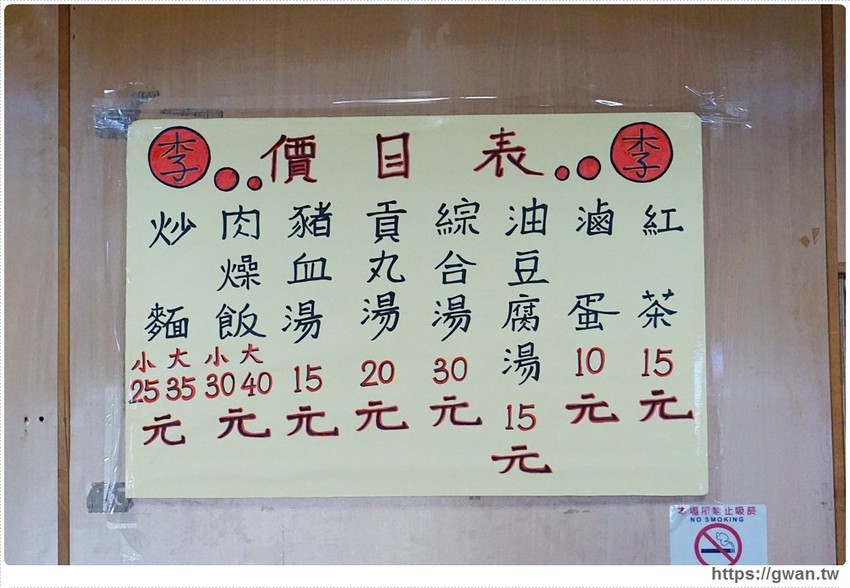 李 價目表 李
炒麵 小25 大35 元
肉燥飯 小30 大40 元
豬血湯 15元
貢丸湯 20元
綜合湯 30元
油豆腐湯 15元
滷蛋 10元
紅茶 15元
本場所禁止吸菸
NO SMOKING
https://gwan.tw